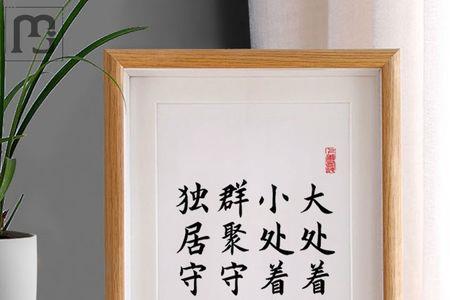 大处着
小处着
群聚守
独居守